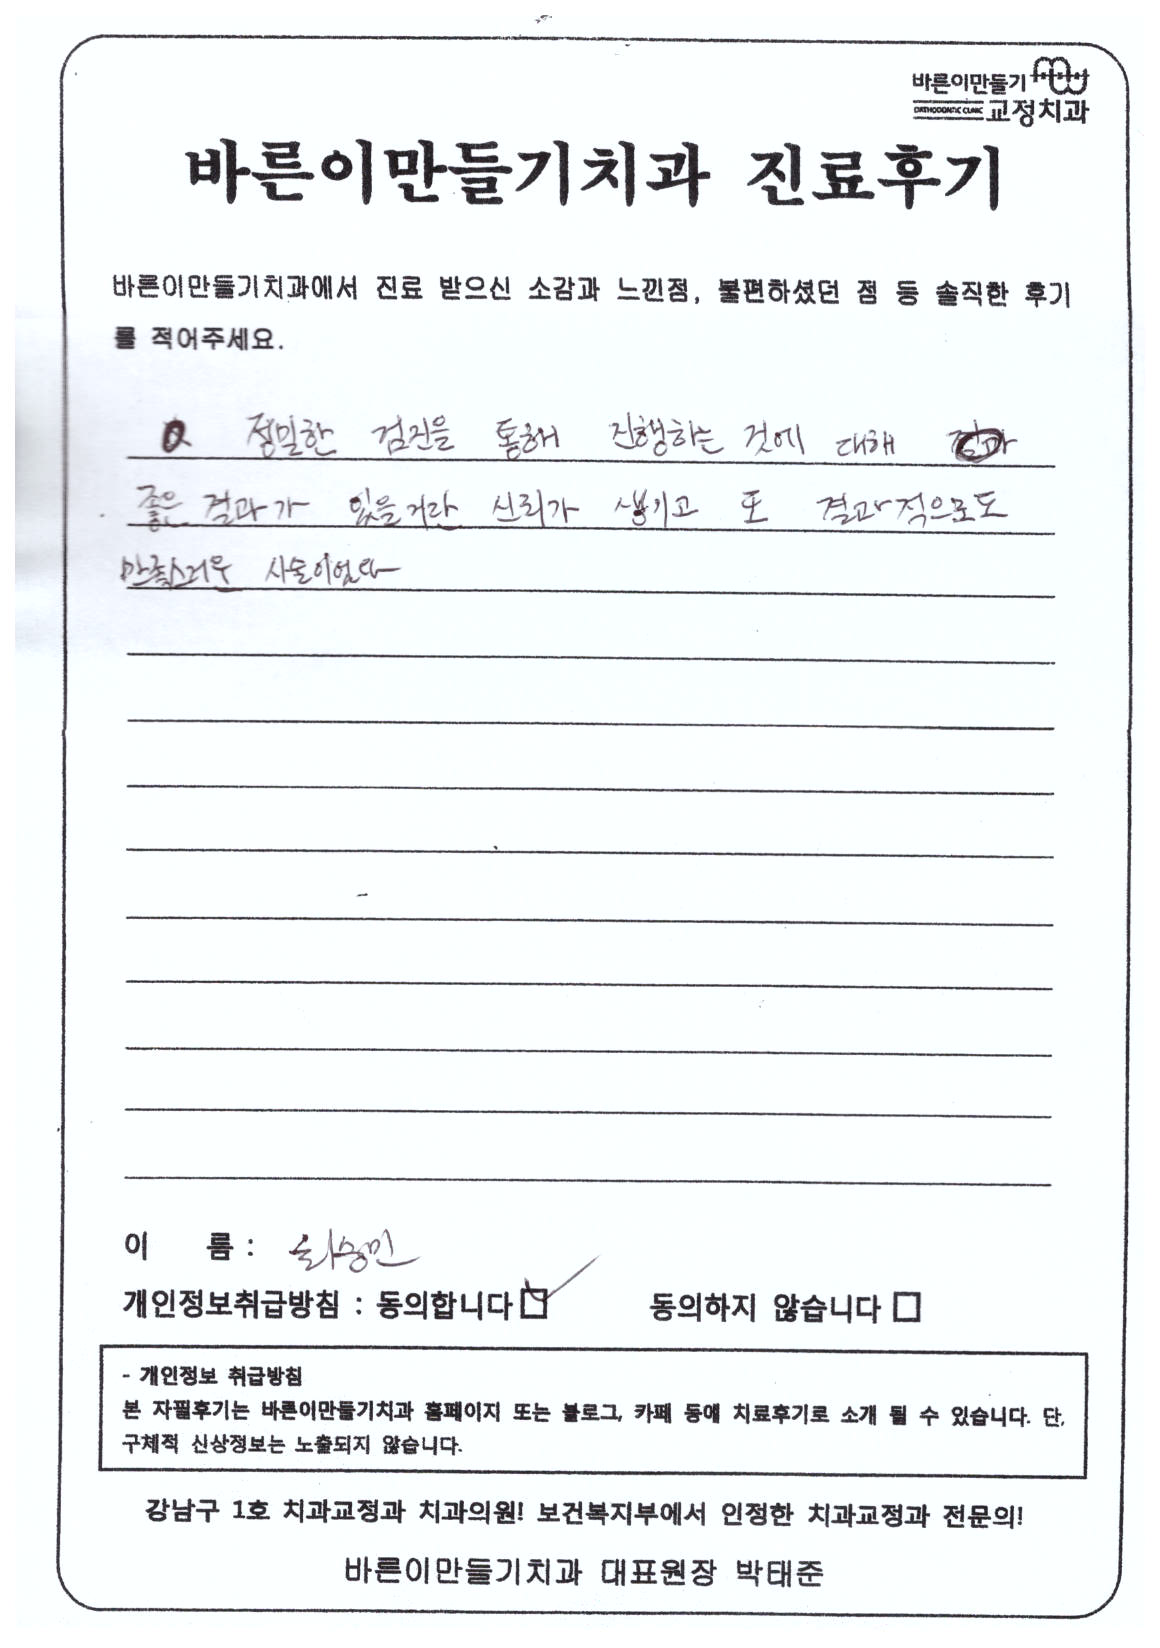 바른이만들기
ORTHODONTIC CLINIC 교정치과
바른이만들기치과 진료후기
바른이만들기치과에서 진료 받으신 소감과 느낀점, 불편하셨던 점 등 솔직한 후기
를 적어주세요.
정밀한 검진을 통해 진행하는 것에 대해
좋은 결과가 있을거라 신뢰가 생기고 또 결과적으로도
만족스러운 시술이었다
이 름 :
개인정보취급방침 : 동의합니다 동의하지 않습니다
- 개인정보 취급방침
본 자필후기는 바른이만들기치과 홈페이지 또는 블로그, 카페 등에 치료후기로 소개 될 수 있습니다. 단,
구체적 신상정보는 노출되지 않습니다.
강남구 1호 치과교정과 치과의원! 보건복지부에서 인정한 치과교정과 전문의!
바른이만들기치과 대표원장 박태준